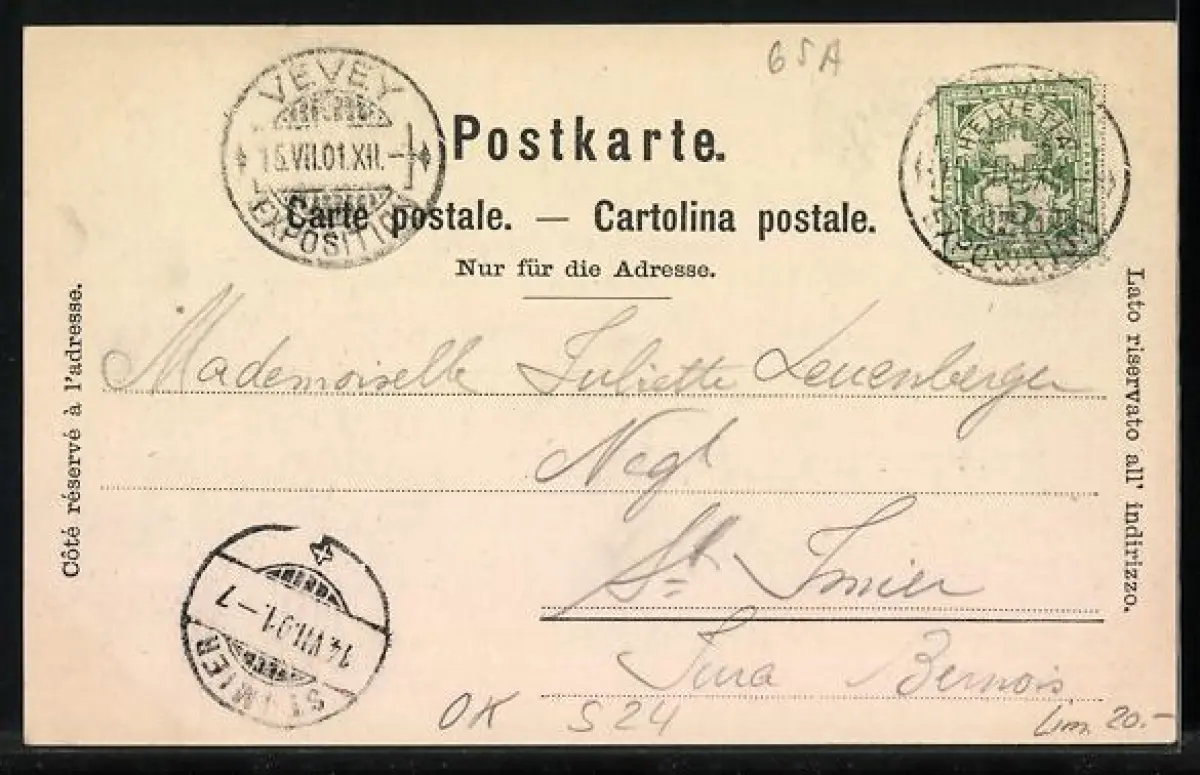 65A
VEVEY
15.VII.01.XII.-
EXPOSITION
HELVETIA
EXPOSITION
Postkarte.
Carte postale. — Cartolina postale.
Nur für die Adresse.
Côté réservé à l'adresse.
Lato riservato all' indirizzo.
Mademoiselle Juliette Leuenberger
Negt
St. Imier
Jura Bernois
14.VII.01.-7
ST. IMIER
OK S24
20.-